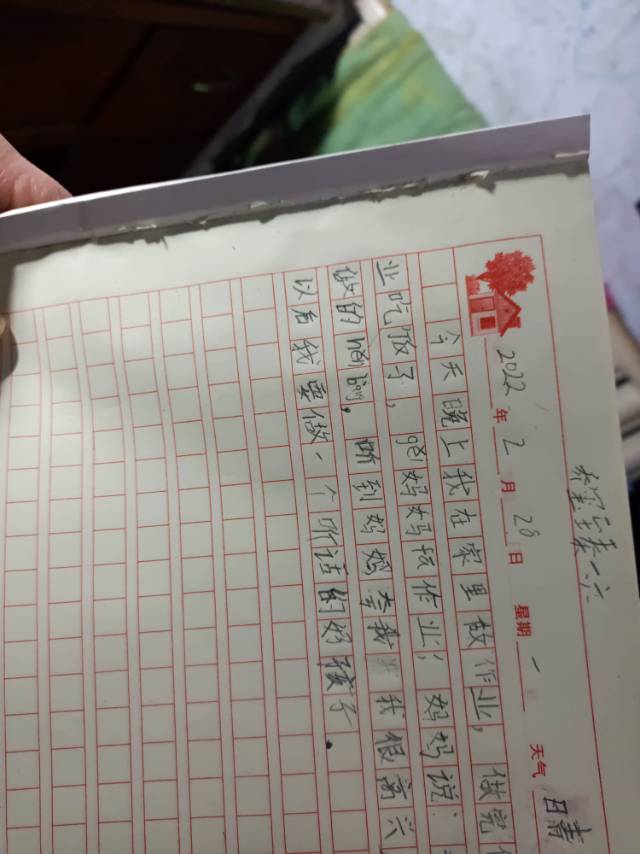 程臻一六
2022年2月28日 星期一 天气晴
今天晚上我在家里做作业，做完
业吃饭了，gei妈妈按作业，妈妈说：
做的nei的，听到妈妈夸我 我很高兴
以后我要做一个听话的好孩子.